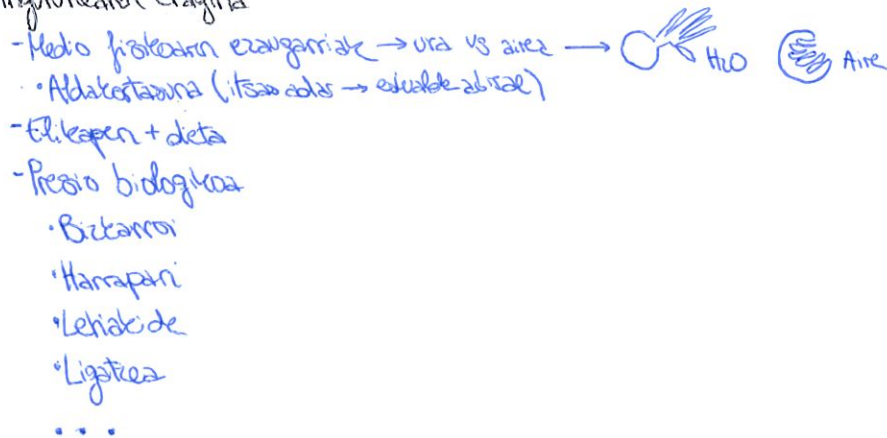 Ingurunearen eragina
- Medio fisikoaren ezaugarriak → ura vs airea → H2O Aire
• Aldakortasuna (itsas adar → eskualde abisal)
- Elikapen + dieta
- Presio biologikoa
• Bizkarroi
• Harrapari
• Lehiakide
• Ligatzea
...